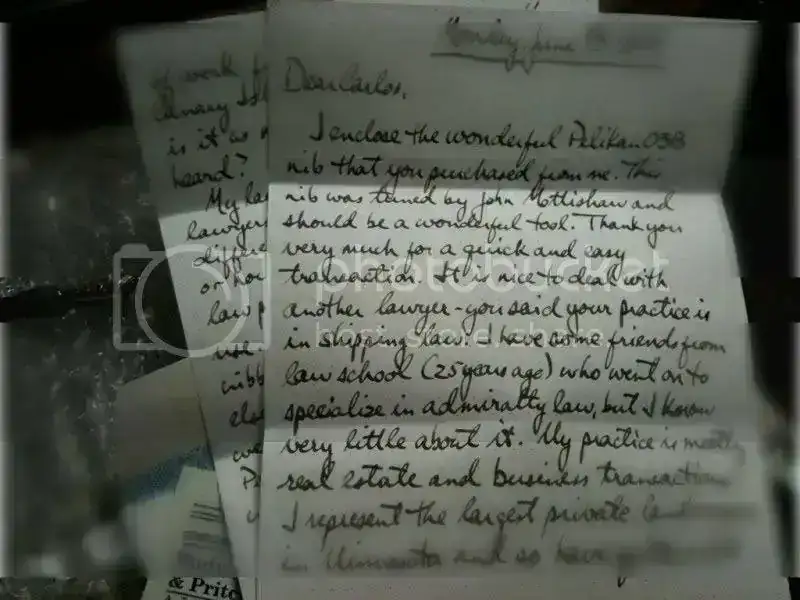 Monday, June
Dear Carlos,
I enclose the wonderful Pelikan 03B
nib that you purchased from me. This
nib was tuned by John Mottishaw and
should be a wonderful tool. Thank you
very much for a quick and easy
transaction. It is nice to deal with
another lawyer - you said your practice is
in shipping law. I have some friends from
law school (25 years ago) who went on to
specialize in admiralty law, but I know
very little about it. My practice is mostly
real estate and business transaction
I represent the largest private
in Minnesota and so have
work
Canary Isl
is it as
heard?
My la
lawyer
differe
or hou
law p
use
nibb
else
we
& Prito
photobucket
host. store. share.